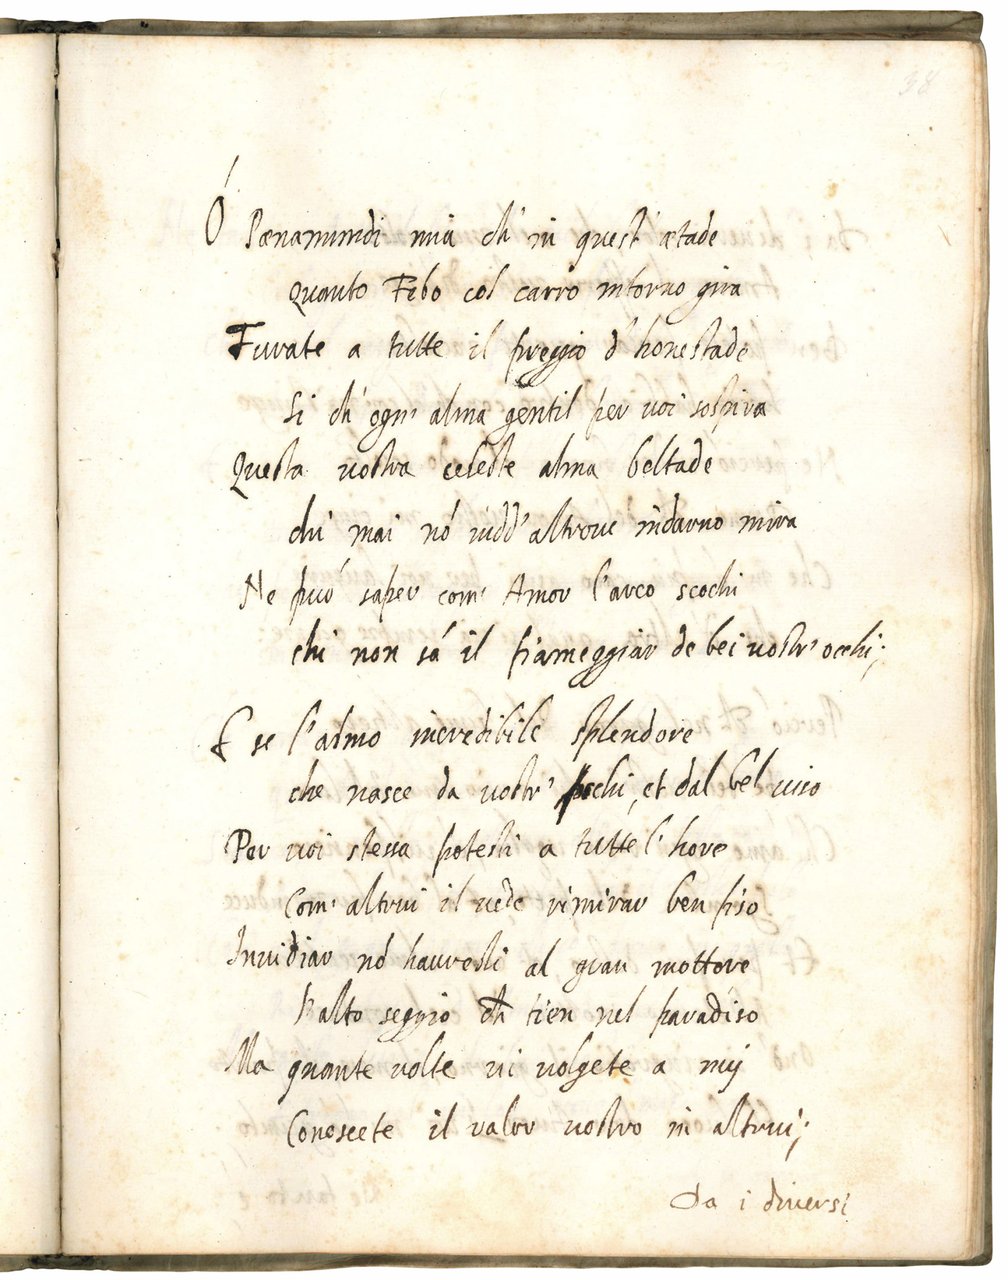 38
Ó Pænamundi mia ch' in quest' ætade
quanto Febo col carro intorno gira
Furate a tutte il preggio d' honestade
si ch' ogn' alma gentil per voi sospira
Questa vostra celeste alma beltade
chi mai nó vidd' altrove indarno mira
Ne può saper com' Amor l'arco scochi
chi non sá il fiameggiar de bei vostr' occhi;
E se l'almo incredibile splendore
che nasce da vostr' occhi, et dal bel viso
Per voi stessa potesti a tutte l' hore
Com' altrui il vede rimirar ben fiso
Invidiar nó havresti al gran mottore
l' alto seggio ch tien nel paradiso
Ma quante volte vi volgete a mij
Conoscete il valor vostro in altrui;
da i diversi